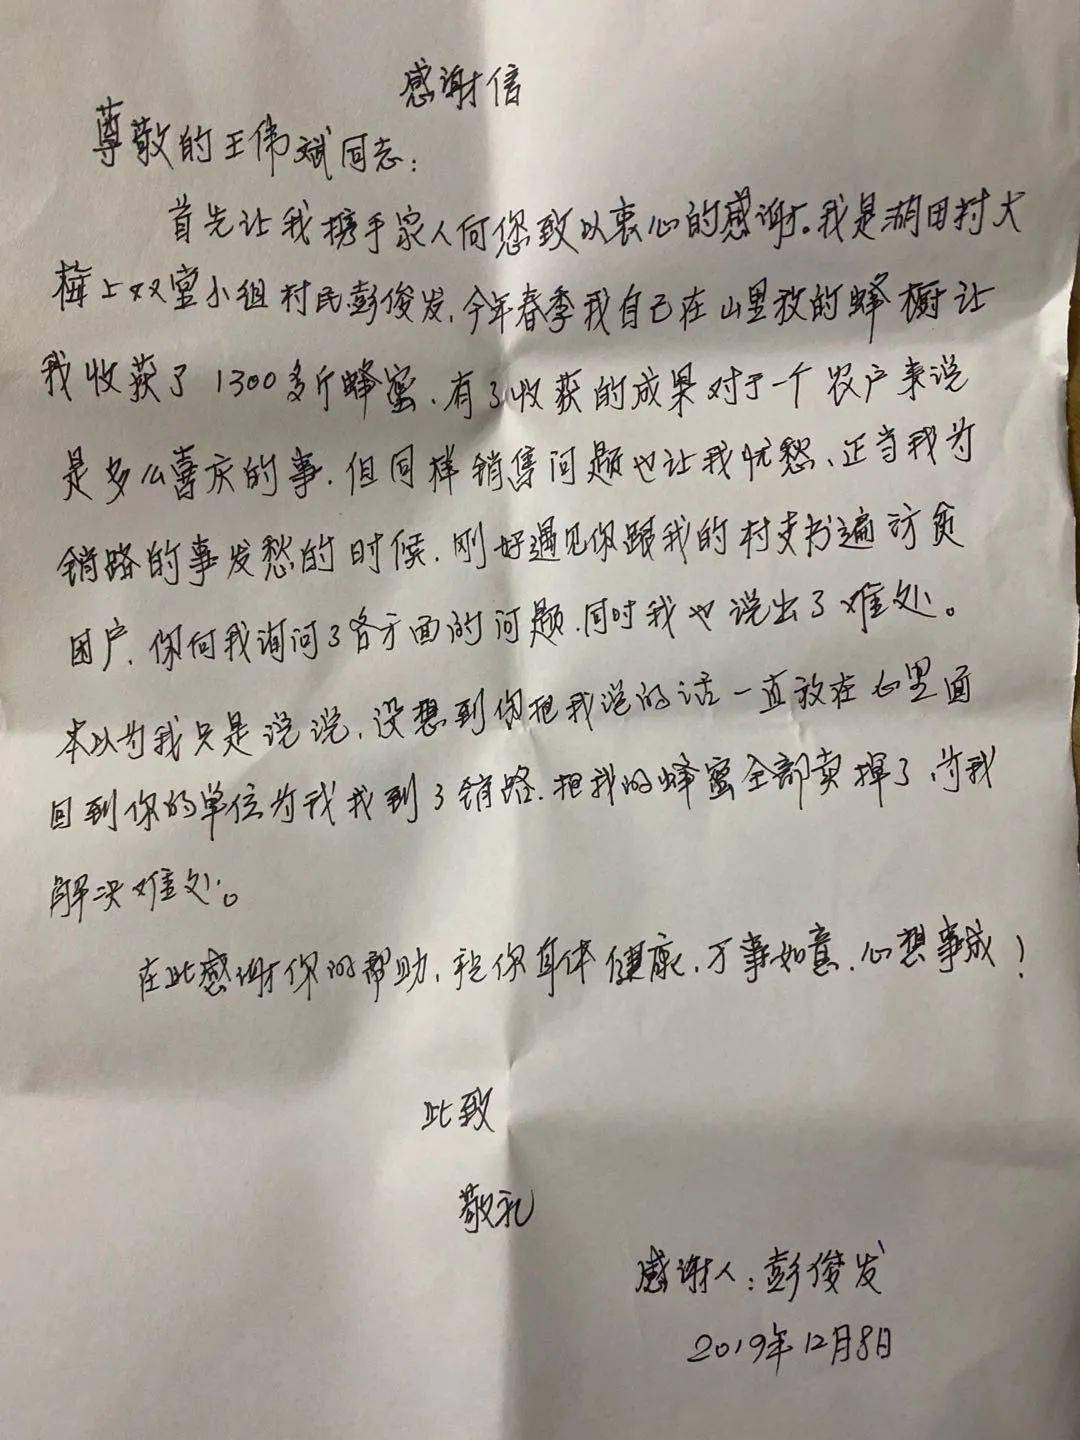 感谢信
尊敬的王伟斌同志：
首先让我携手家人向您致以衷心的感谢。我是湖田村大
梅上双室小组村民彭俊发,今年春季我自己在山里放的蜂橱让
我收获了1300多斤蜂蜜、有了收获的成果对于一个农户来说
是多么喜庆的事.但同样销售问题也让我忧愁、正当我为
销路的事发愁的时候.刚好遇见你跟我的村支书遍访贫
困户.你向我询问了各方面的问题.同时我也说出了难处。
本以为我只是说说,没想到你把我说的话一直放在心里面
回到你的单位为我找到了销路.把我的蜂蜜全部卖掉了,为我
解决难处。
在此感谢你的帮助,祝你身体健康、万事如意.心想事成！
此致
敬礼
感谢人：彭俊发
2019年12月8日